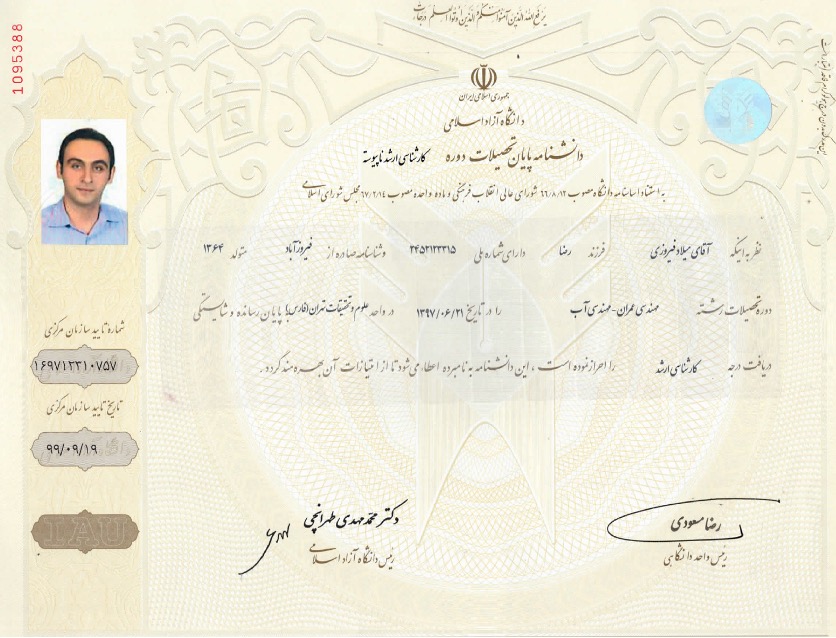 یرفع الله الذین آمنوا منکم والذین اوتوا العلم درجات
1095388
جمهوری اسلامی ایران
دانشگاه آزاد اسلامی
دانشنامه پایان تحصیلات دوره کارشناسی ارشد ناپیوسته
به استناد اساسنامه دانشگاه مصوب ۶۶/۸/۱۲ شورای عالی انقلاب فرهنگی و ماده واحده مصوب ۶۷/۲/۱۴ مجلس شورای اسلامی
نظر به اینکه آقای میلاد فیروزی فرزند رضا دارای شماره ملی ۲۴۵۲۱۲۳۳۱۵ و شناسنامه صادره از فیروزآباد متولد ۱۳۶۴
دوره تحصیلات رشته مهندسی عمران-مهندسی آب را در تاریخ ۱۳۹۷/۰۶/۲۱ در واحد علوم و تحقیقات تهران(فارس) با پایان رسانده و شایستگی
دریافت درجه کارشناسی ارشد را احراز نموده است ، این دانشنامه به نامبرده اعطاء می‌شود تا از امتیازات آن بهره مند گردد .
شمارهٔ تایید سازمان مرکزی
۱۶۹۷۱۲۳۱۰۷۵۷
تاریخ تایید سازمان مرکزی
۹۹/۰۹/۱۹
IAU
رضا مسعودی
رئیس واحد دانشگاهی
دکتر محمد مهدی طهرانچی
رئیس دانشگاه آزاد اسلامی